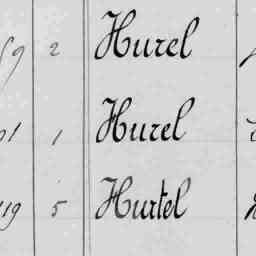 2 Hurel
1 Hurel
119 5 Hurtel